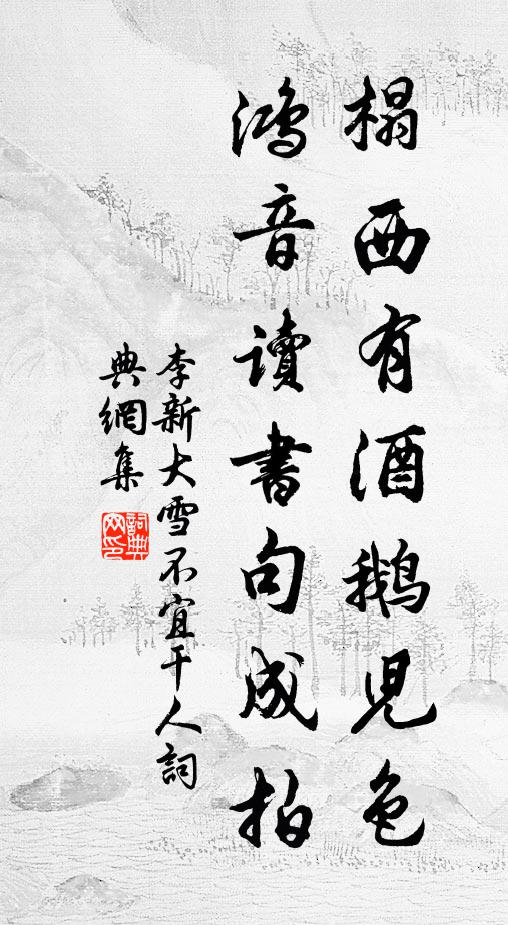 榻西有酒鹅兒色
鴻音讀書句成拍
李新大雪不宜干人詞
典網集
詞典
网印